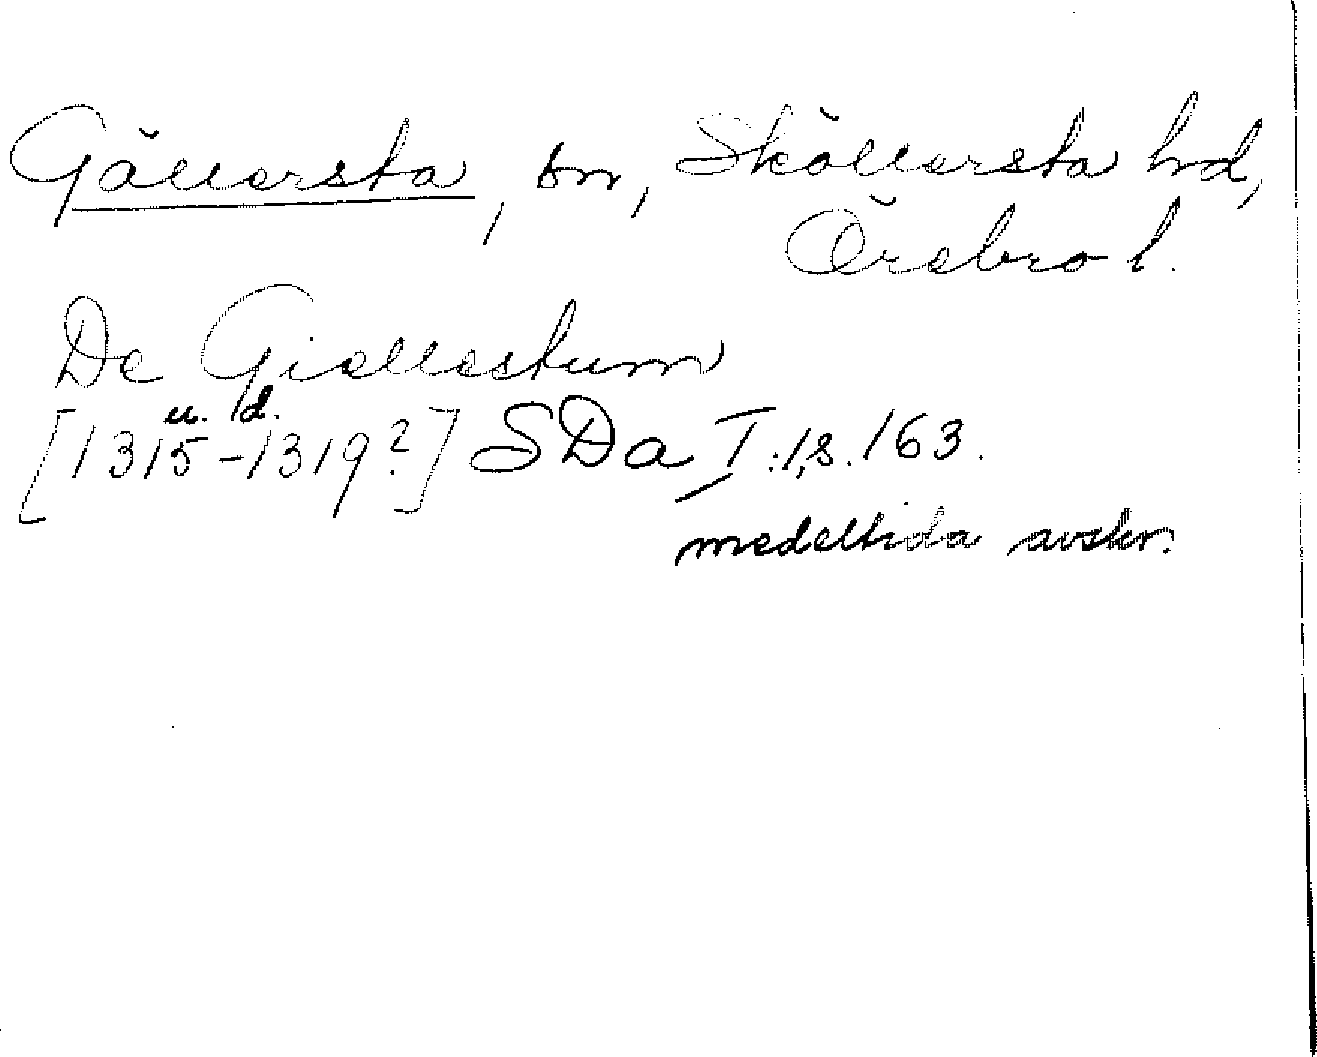 Gällersta, sn, Sköllersta hd,
Örebro l.
De Giællestum
u. d.
[1315-1319?] SDa I:1, s. 163.
medeltida avskr.